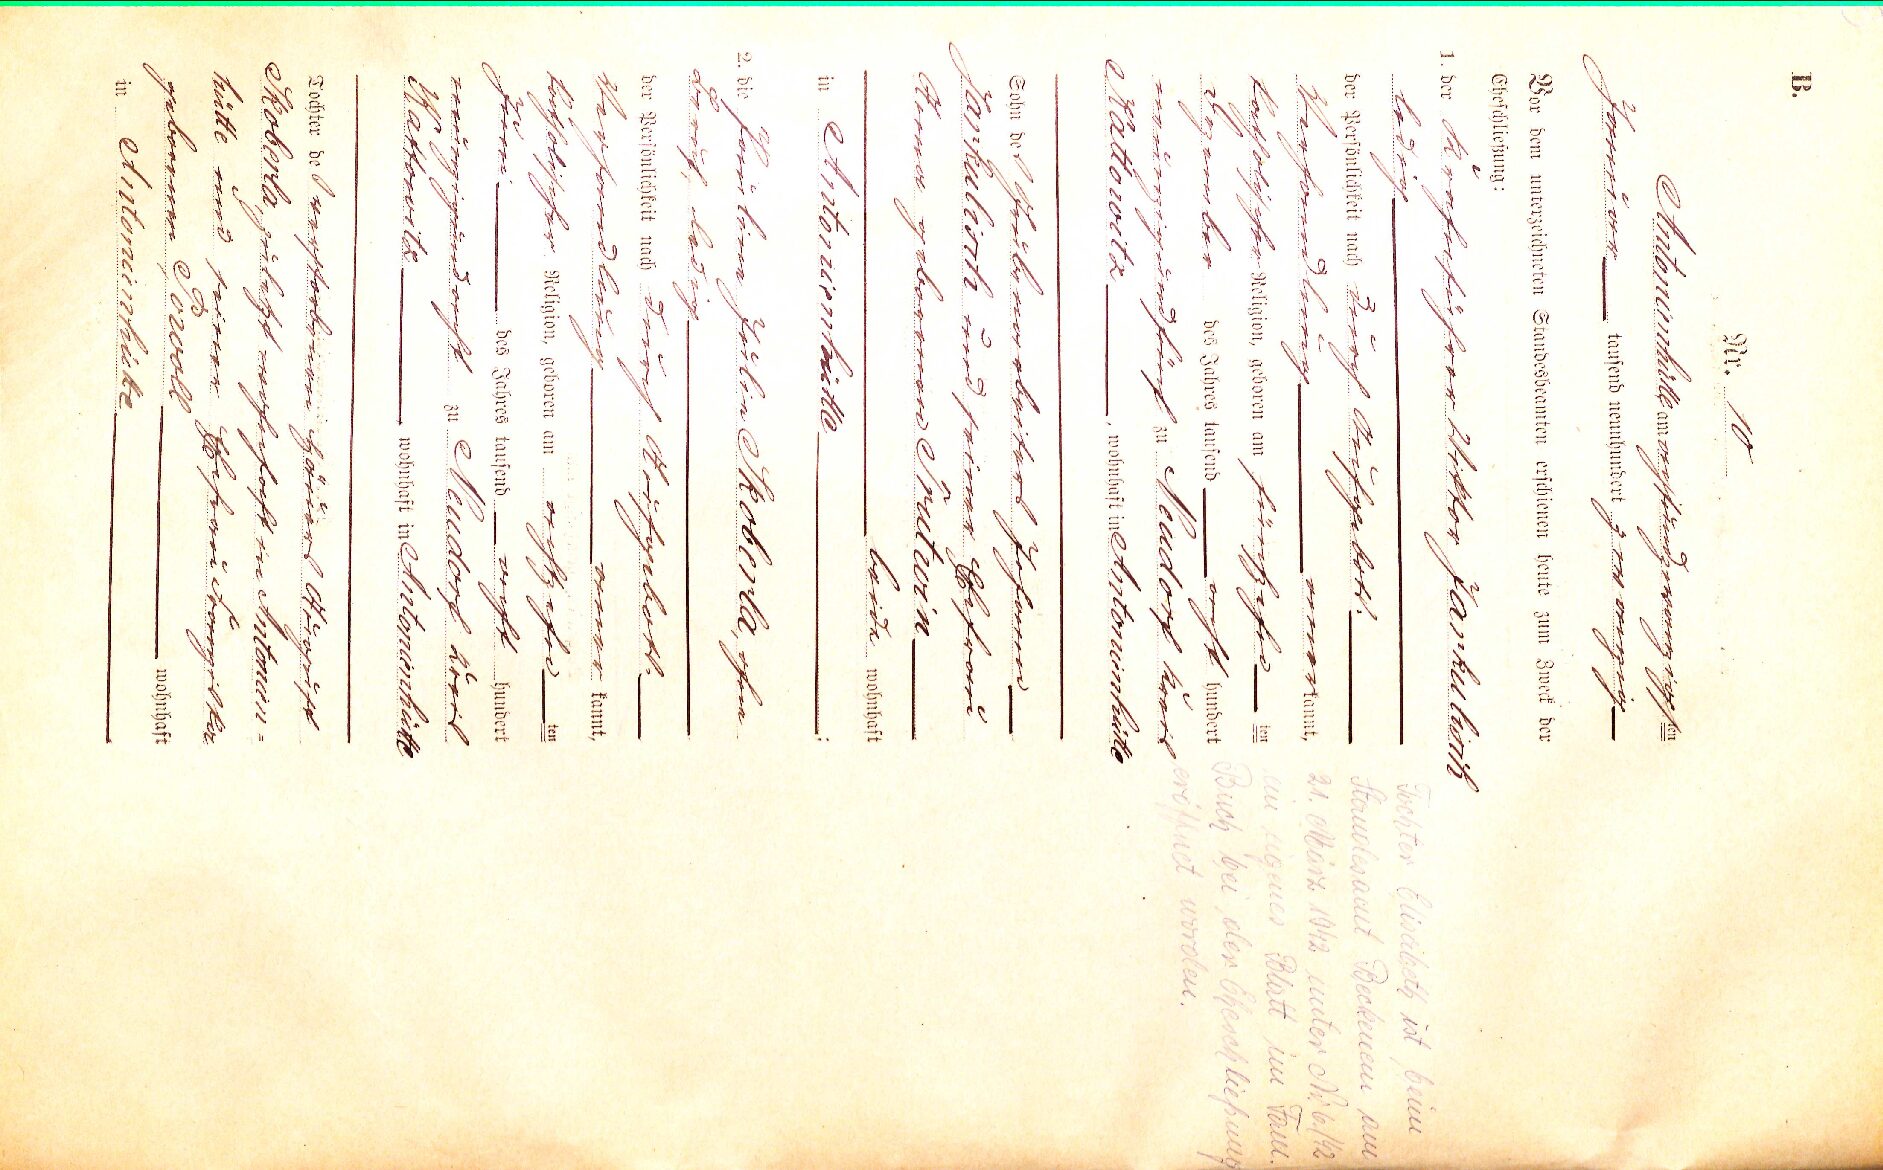 B.
Nr. 10
Antonienhütte am achtundzwanzigsten
Januar tausend neunhundert zwanzig
Vor dem unterzeichneten Standesbeamten erschienen heute zum Zweck der
Eheschließung:
1. der Kranführer Viktor Jankulisch
ledig
der Persönlichkeit nach durch Aufgebots
Verhandlung anerkannt,
katholischer Religion, geboren am fünfzehnten
Dezember des Jahres tausend acht hundert
neunzigundfünf zu Neudorf Kreis
Kattowitz, wohnhaft in Antonienhütte
Sohn des Grubenarbeiters Johann
Jankulisch und seiner Ehefrau
Anna geborenen
beide wohnhaft
in Antonienhütte;
2. die Pauline Julie Skoberla, ohne
Beruf, ledig
der Persönlichkeit nach durch Aufgebots
Verhandlung anerkannt,
katholischer Religion, geboren am achtzehnten
Juni des Jahres tausend acht hundert
neunzigundacht zu Neudorf Kreis
Kattowitz, wohnhaft in Antonienhütte
Tochter des verstorbenen Häuers August
Skoberla, zuletzt wohnhaft in Antonien=
hütte und seiner Ehefrau
geborenen
wohnhaft
in Antonienhütte
Tochter Elisabeth ist beim
Standesamt am
21. März 1942 unter Nr. 6/42
ein eigenes Blatt im Fam.
Buch bei der Eheschließung
eröffnet worden.